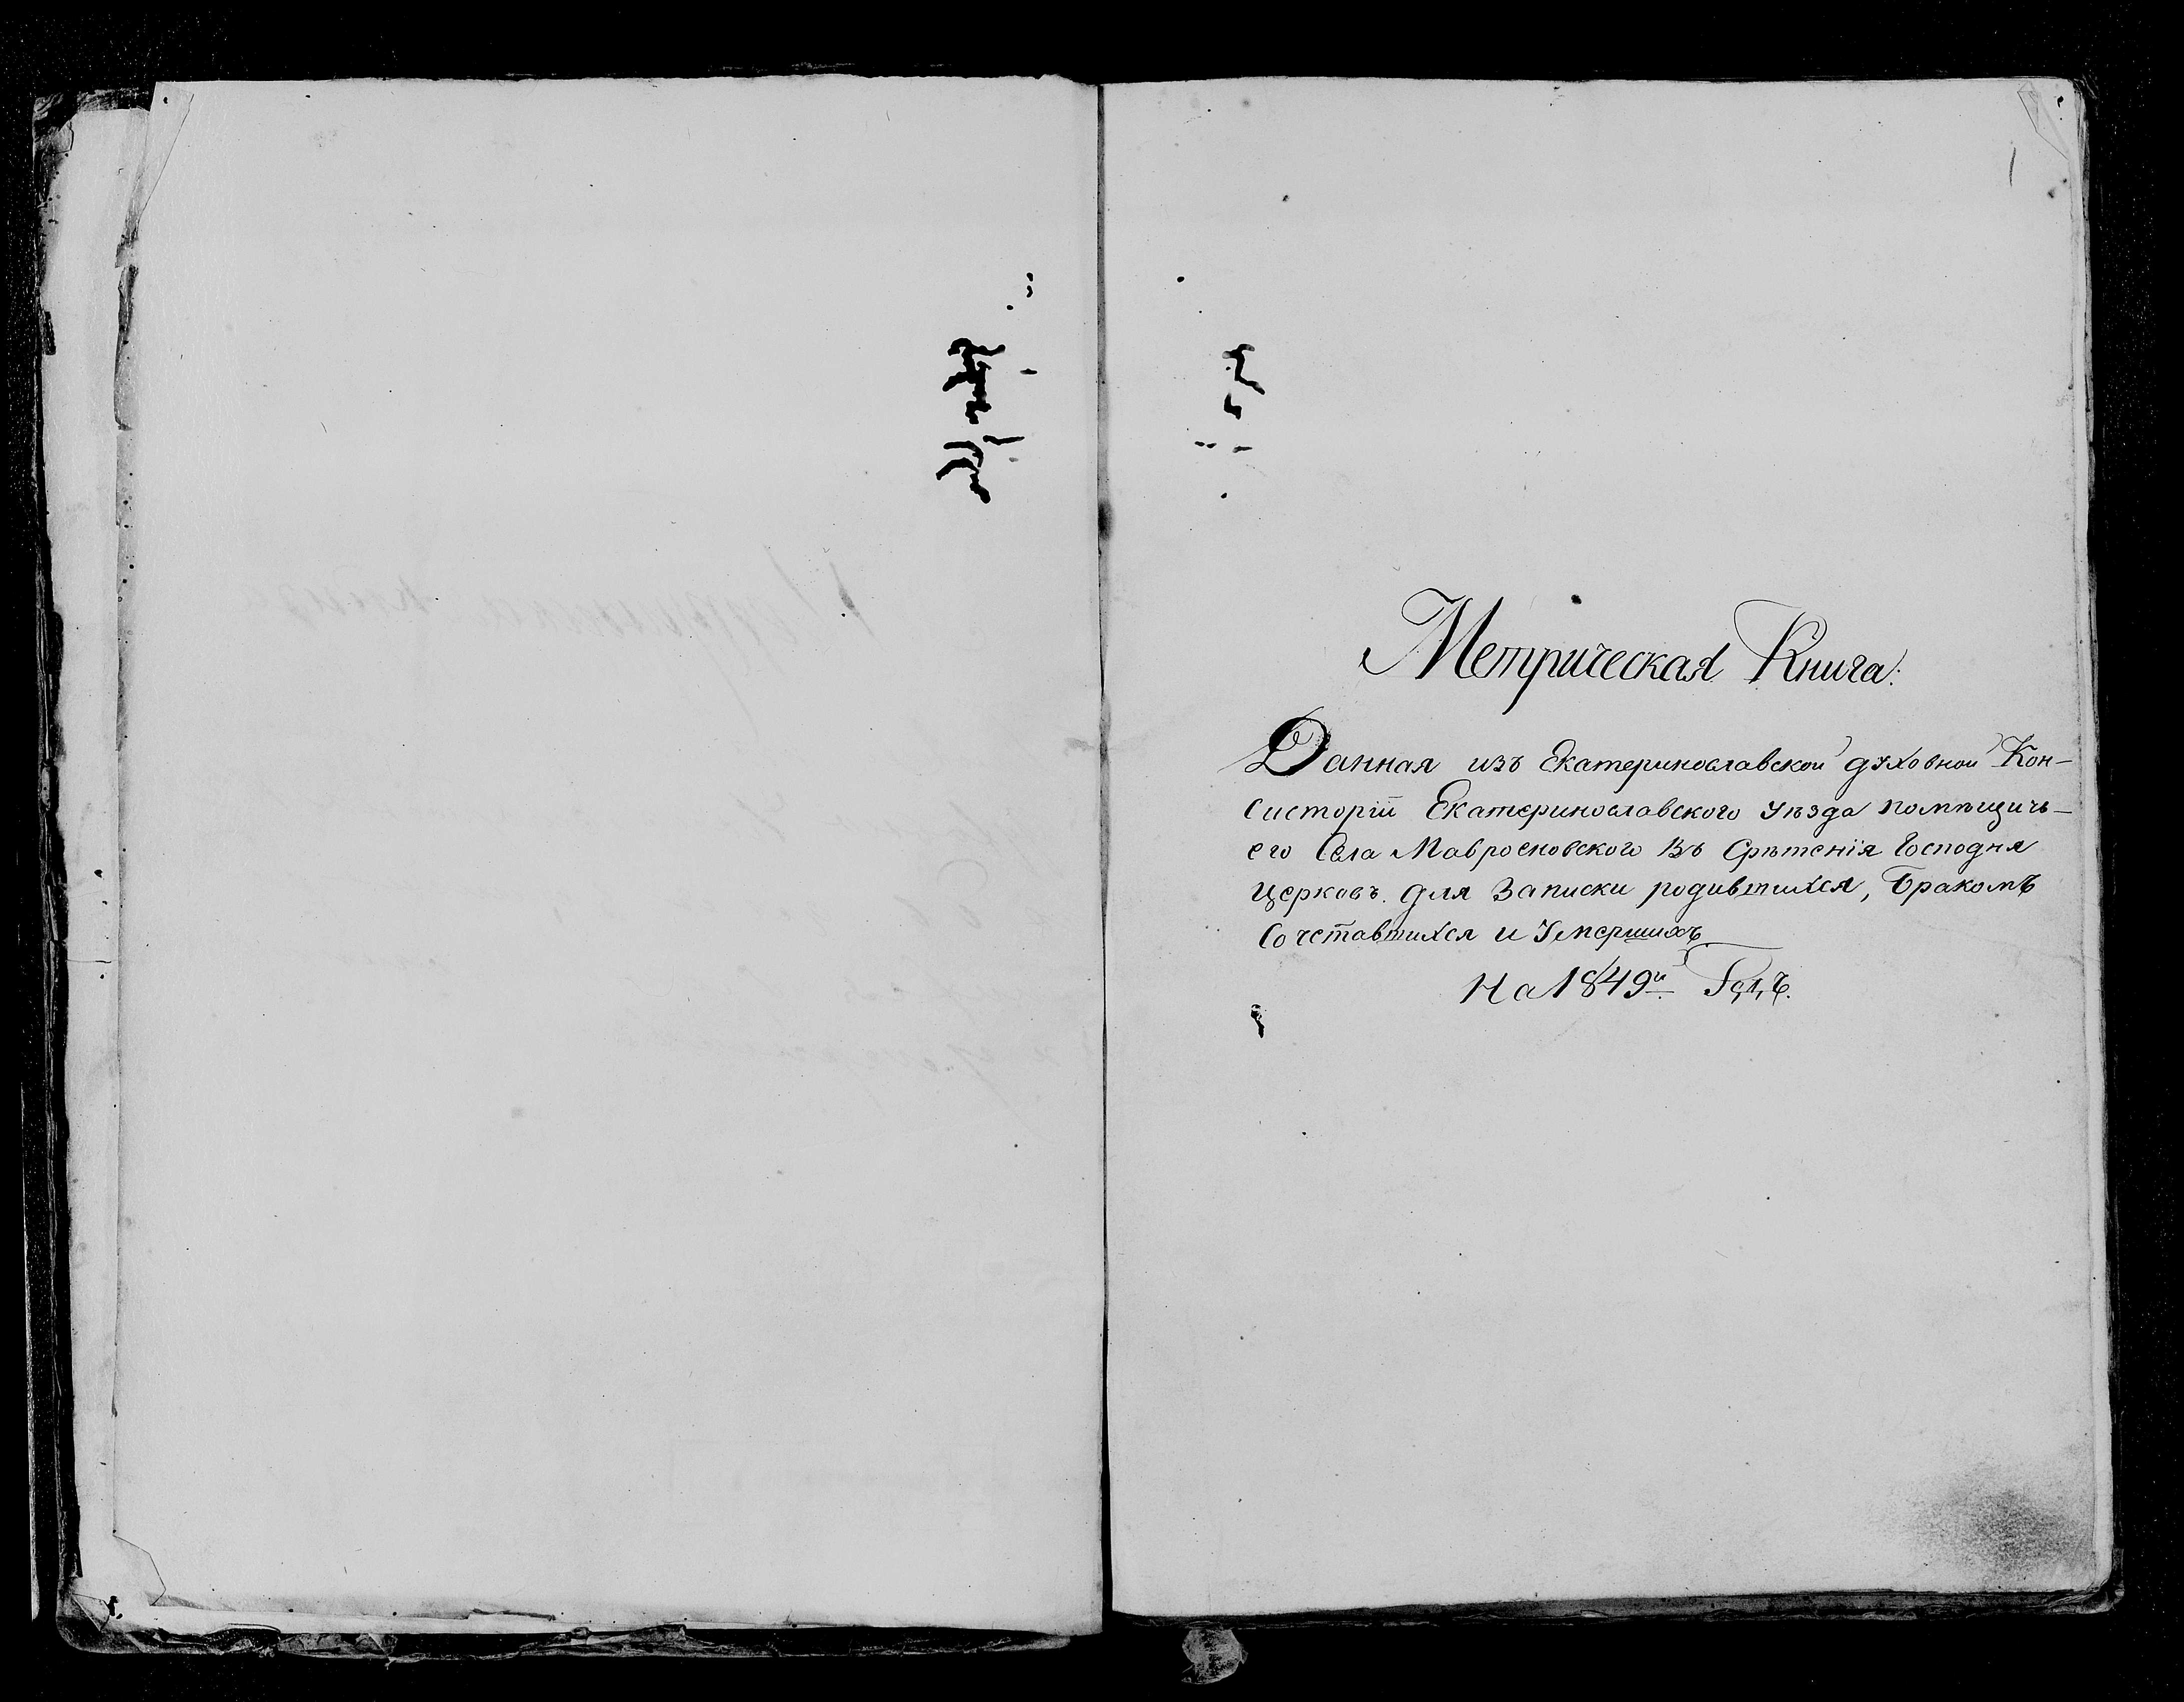 1
Метрическая Книга:
Данная изъ Екатеринославской духовной Кон-
систоріи Екатеринославского Уѣзда помѣщичь-
его Села Мавросновского Въ Срѣтенія Господня
Церковь для Записки родившихся, Бракомъ
Сочетавшихся и Умершихъ
На 1849й Годъ.